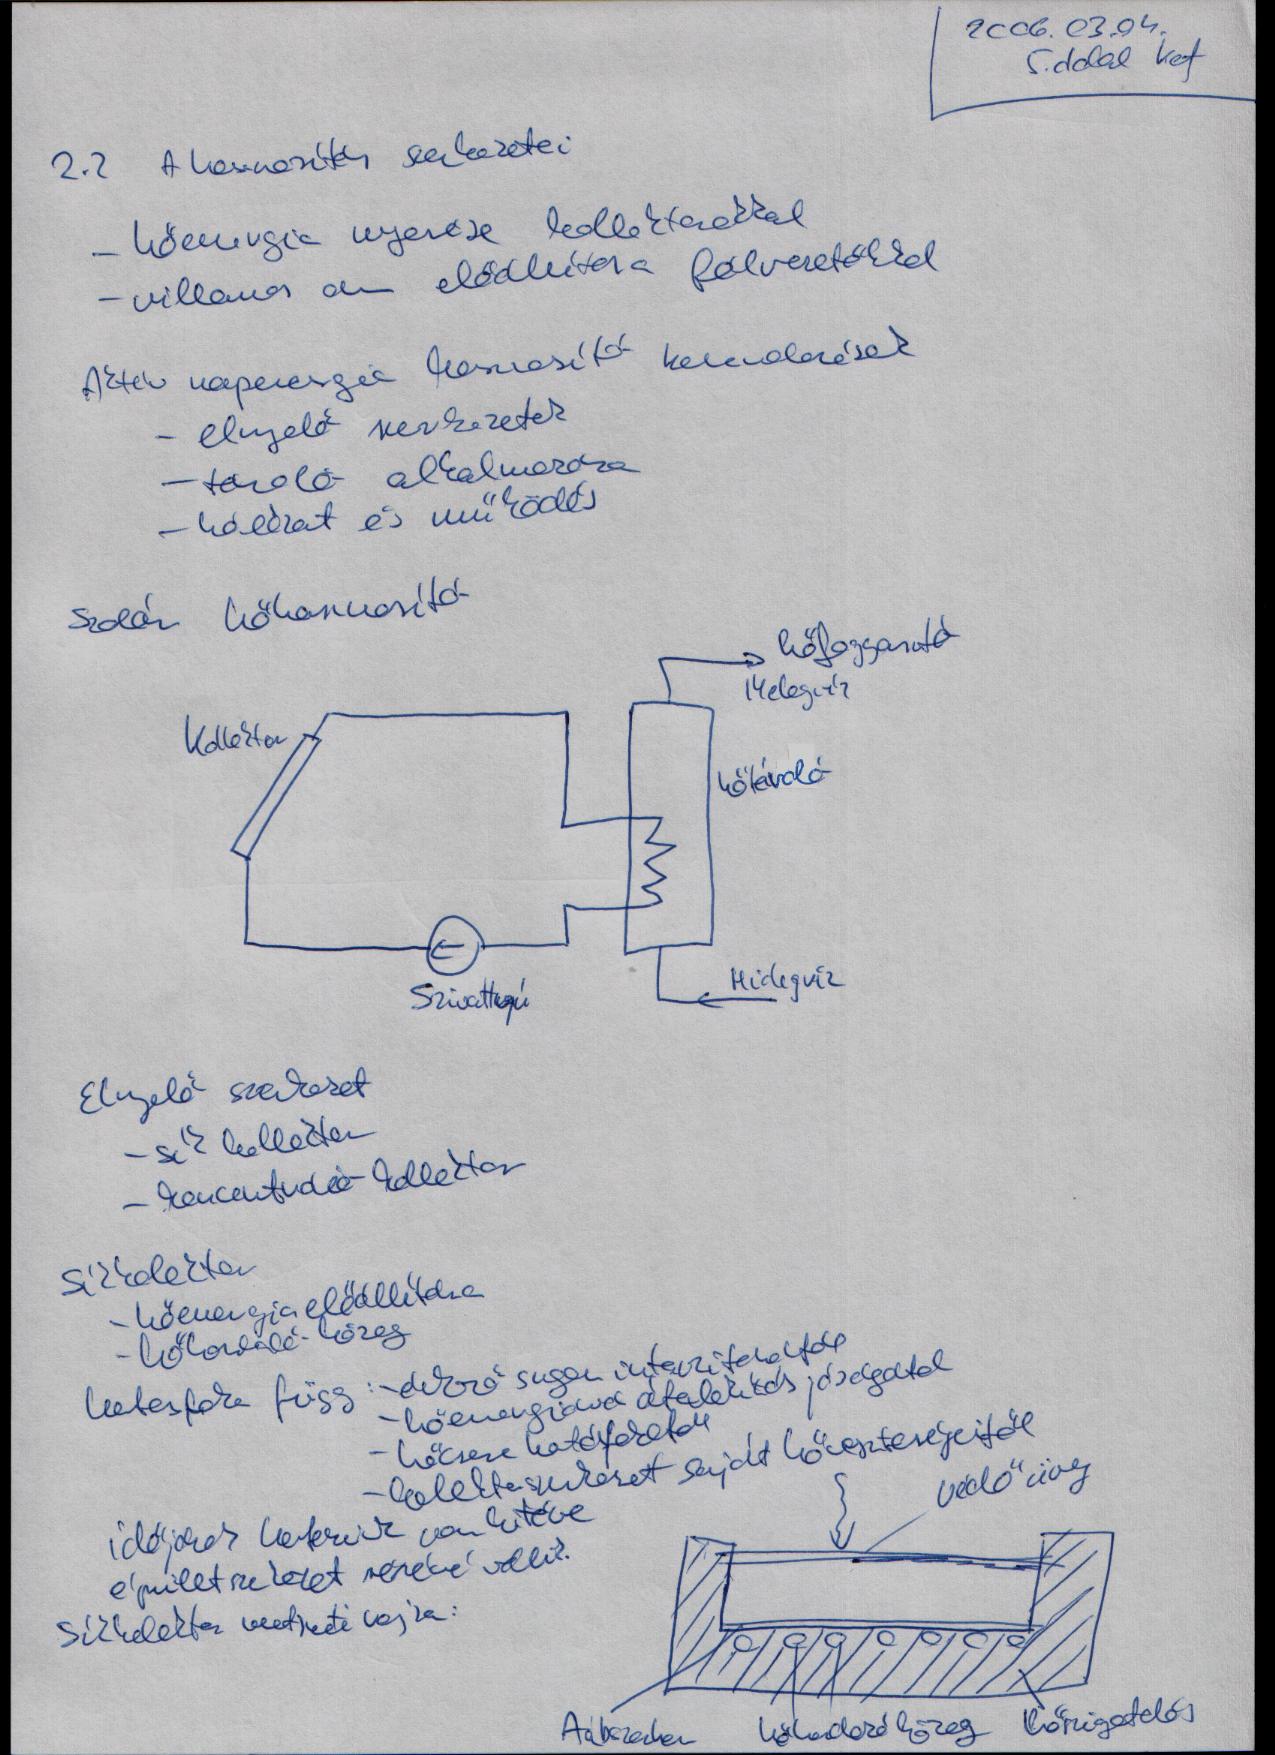 2006.03.04.
5. oldal
2.2 A hasznosítás szerkezetei
- hőenergia nyerése kollektorokkal
- villamos áram előállítása félvezetőkkel
Aktív napenergia hasznosító berendezések
- elnyelő szerkezetek
- tároló alkalmazása
- hálózat és működés
Szolár hőhasznosító
hőfogyasztó
Melegvíz
Kollektor
hőtároló
Szivattyú
Hidegvíz
Elnyelő szerkezet
- sík kollektor
- koncentráló kollektor
Síkkollektor
- hőenergia előállítása
- hőhordozó közeg
hatásfoka függ: - elnyelő sugárzás intenzitásától
- hőenergiává átalakítás jóságától
- hőcsere hatásfokától
- kollektorszerkezet saját hőveszteségeitől
időjárás hatásainak van kitéve
épületszerkezet részévé válik.
védő üveg
Síkkollektor metszeti rajza:
hőhordozó közeg
hőszigetelés